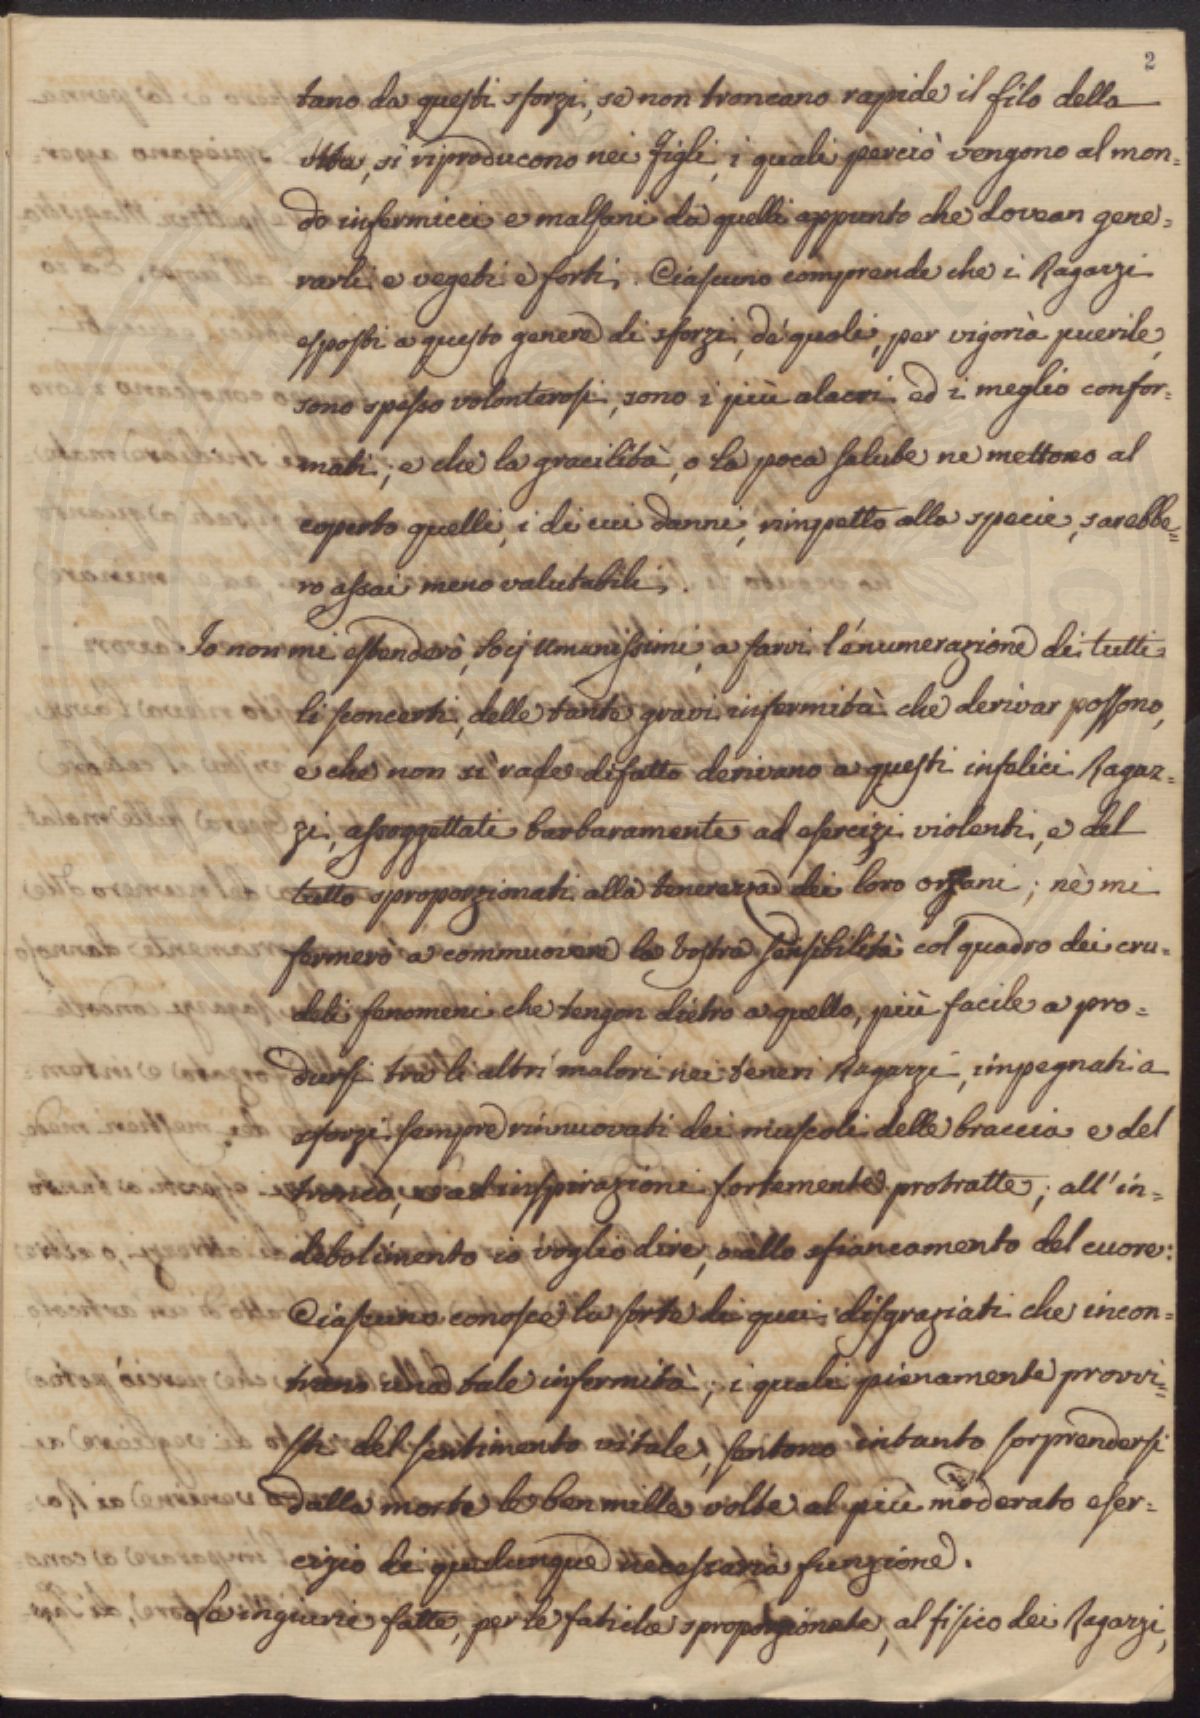 2
tano da questi sforzi, se non troncano rapide il filo della
vita, si riproducono nei Figli, i quali perciò vengono al mon=
do infermicci e malsani da quelli appunto che dovean gene=
rarli e vegeti e forti. Ciascuno comprende che i Ragazzi
esposti a questo genere di sforzi, de' quali, per vigorìa puerile,
sono spesso volonterosi, sono i più alacri ed i meglio confor=
mati; e che la gracilità, o la poca salute ne mettono al
coperto quelli, i di cui danni, rimpetto alla specie, sarebbe=
ro assai meno valutabili.
Io non mi estenderò, Socj Umanissimi, a farvi l'enumerazione di tutti
li sconcerti, delle tante gravi infermità che derivar possono,
e che non di rado difatto derivano a questi infelici Ragaz=
zi, assoggettati barbaramente ad esercizi violenti, e del
tutto sproporzionati alla tenerezza dei loro organi; nè mi
fermerò a commuovere la vostra sensibilità col quadro dei cru=
deli fenomeni che tengon dietro a quello, più facile a pro=
dursi tra li altri malori nei teneri Ragazzi, impegnati a
sforzi sempre rinnuovati dei muscoli delle braccia e del
tronco, ed inspirazioni fortemente protratte; all'in=
debolimento io voglio dire, o allo sfiancamento del cuore:
Ciascuno conosce la sorte di quei disgraziati che incon=
trano una tale infermità; i quali pienamente provvi=
sti del sentimento vitale, sentono intanto sorprendersi
dalla morte le ben mille volte al più moderato eser=
cizio di qualunque necessaria funzione.
Le ingiurie fatte, per le fatiche sproporzionate, al fisico dei Ragazzi,